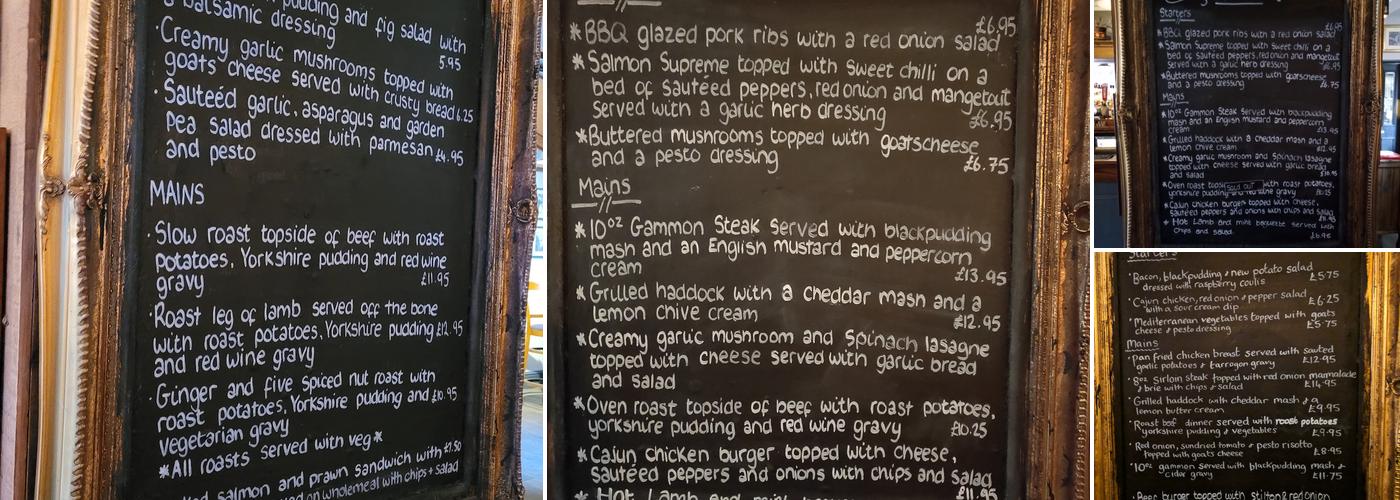 pudding and fig salad with
a balsamic dressing 5.95
·Creamy garlic mushrooms topped with
goats cheese served with crusty bread 6.25
·Sauteéd garlic, asparagus and garden
pea salad dressed with parmesan £4.95
and pesto
MAINS
·Slow roast topside of beef with roast
potatoes, Yorkshire pudding and red wine
gravy £11.95
·Roast leg of lamb served off the bone
with roast potatoes, Yorkshire pudding £12.95
and red wine gravy
·Ginger and five spiced nut roast with
roast potatoes, Yorkshire pudding and £10.95
vegetarian gravy
*All roasts served with veg*
salmon and prawn sandwich with £7.50
on wholemeal with chips + salad
£6.95
*BBQ glazed pork ribs with a red onion salad
*Salmon Supreme topped with sweet chilli on a
bed of sautéed peppers, red onion and mangetout
served with a garlic herb dressing £6.95
*Buttered mushrooms topped with goatscheese
and a pesto dressing £6.75
Mains
*10oz Gammon Steak served with blackpudding
mash and an English mustard and peppercorn
cream £13.95
*Grilled haddock with a cheddar mash and a
lemon chive cream £12.95
*Creamy garlic mushroom and Spinach lasagne
topped with cheese served with garlic bread
and salad
*Oven roast topside of beef with roast potatoes,
yorkshire pudding and red wine gravy £10.25
*Cajun chicken burger topped with cheese,
sautéed peppers and onions with chips and salad
* Hot Lamb and mint £11.95
Starters
£6.95
*BBQ glazed pork ribs with a red onion salad
*Salmon Supreme topped with sweet chilli on a
bed of sautéed peppers, red onion and mangetout
served with a garlic herb dressing £6.95
*Buttered mushrooms topped with goatscheese
and a pesto dressing £6.75
Mains
*10oz Gammon Steak served with blackpudding
mash and an English mustard and peppercorn
cream £13.95
*Grilled haddock with a cheddar mash and a
lemon chive cream £12.95
*Creamy garlic mushroom and Spinach lasagne
topped with cheese served with garlic bread
and salad £10.95
*Oven roast topside SOLD OUT with roast potatoes,
yorkshire pudding and red wine gravy £10.25
*Cajun chicken burger topped with cheese,
sautéed peppers and onions with chips and salad
£11.95
* Hot Lamb and mint baguette served with
chips and salad £6.95
Starters
·Bacon, blackpudding & new potato salad
dressed with raspberry coulis £5.75
·Cajun chicken, red onion & pepper salad
with a sour cream dip £6.25
·Mediterranean vegetables topped with goats
cheese & pesto dressing £5.75
Mains
·Pan fried chicken breast served with sauted
garlic potatoes & tarragon gravy £12.95
·8oz Sirloin steak topped with red onion marmalade
& brie with chips & salad £14.95
·Grilled haddock with cheddar mash & a
lemon butter cream £9.95
·Roast beef dinner served with roast potatoes
yorkshire pudding & vegetables £9.95
·Red onion, sundried tomato & pesto risotto
topped with goats cheese £8.95
·10oz gammon served with blackpudding mash &
cider gravy £11.75
·Beef burger topped with stilton & red onion